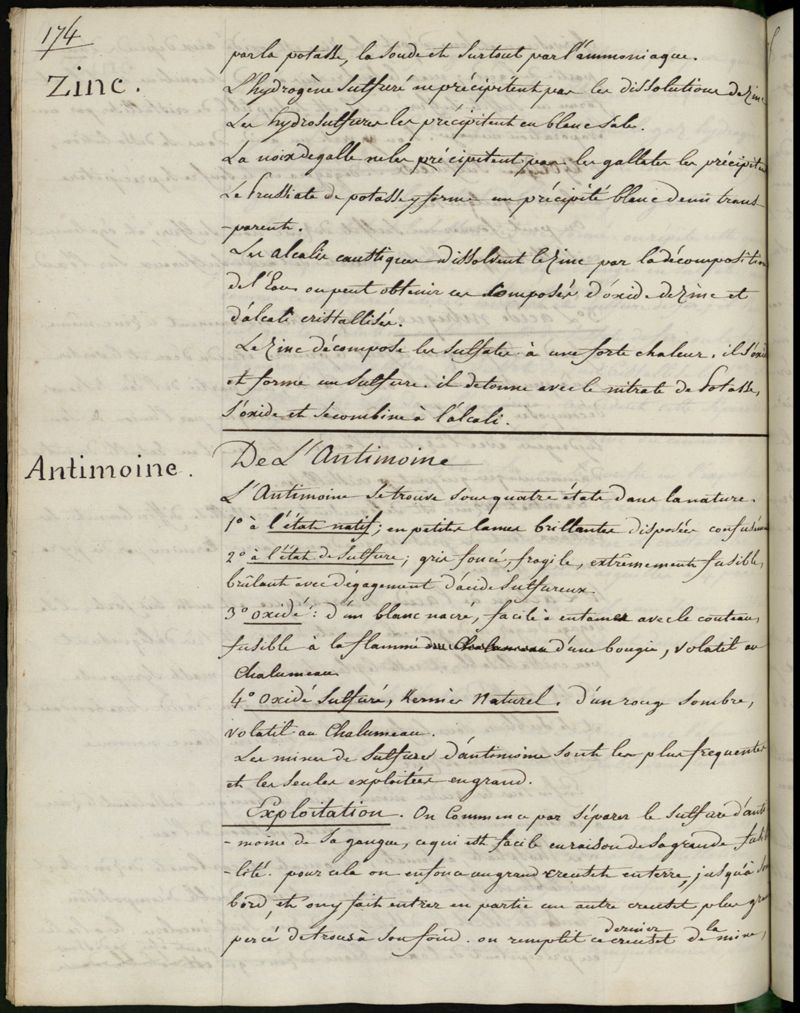 174
Zinc.
par la potasse, la soude et surtout par l'ammoniaque.
L'hydrogène sulfuré ne précipitent pas les dissolutions de Zinc
Les hydrosulfures les précipitent en blanc sale.
La noix de galle ne les précipitent pas les gallates les précipitent
Le Prussiate de potasse y forme un précipité blanc demi trans-
-parent.
Les alcalis caustiques dissolvent le Zinc par la décomposition
de l'Eau on peut obtenir ces composés d'óxide de Zinc et
d'alcali cristallisés.
Le Zinc décompose les sulfates à une forte chaleur. il s'oxide
et forme un sulfure. il detonne avec le nitrate de Potasse,
s'oxide et se combine à l'alcali.
Antimoine.
De L'Antimoine
L'Antimoine se trouve sous quatre états dans la nature.
1º à l'état natif; en petites lames brillantes disposées confusément
2º à l'état de sulfure; gris foncé, fragile, extrêmement fusible,
brûlant avec dégagement d'acide sulfureux.
3º oxidé: d'un blanc nacré, facile à entamer avec le couteau,
fusible à la flamme d'une bougie, volatil au
Chalumeau
4º oxidé sulfuré, Kermès Naturel. d'un rouge sombre,
volatil au Chalumeau.
Les mines de sulfures d'antimoine sont les plus frequentes
et les seules exploitées en grand.
Exploitation. On Commence par séparer le sulfure d'anti
-moine de sa gangue, ce qui est facile en raison de sa grande fusibi
-lité. pour cela on enfonce un grand creuset en terre, jusqu'à son
bord, et on y fait entrer en partie un autre creuset plus grand
percé de trous à son fond. on remplit ce dernier creuset de la mine,